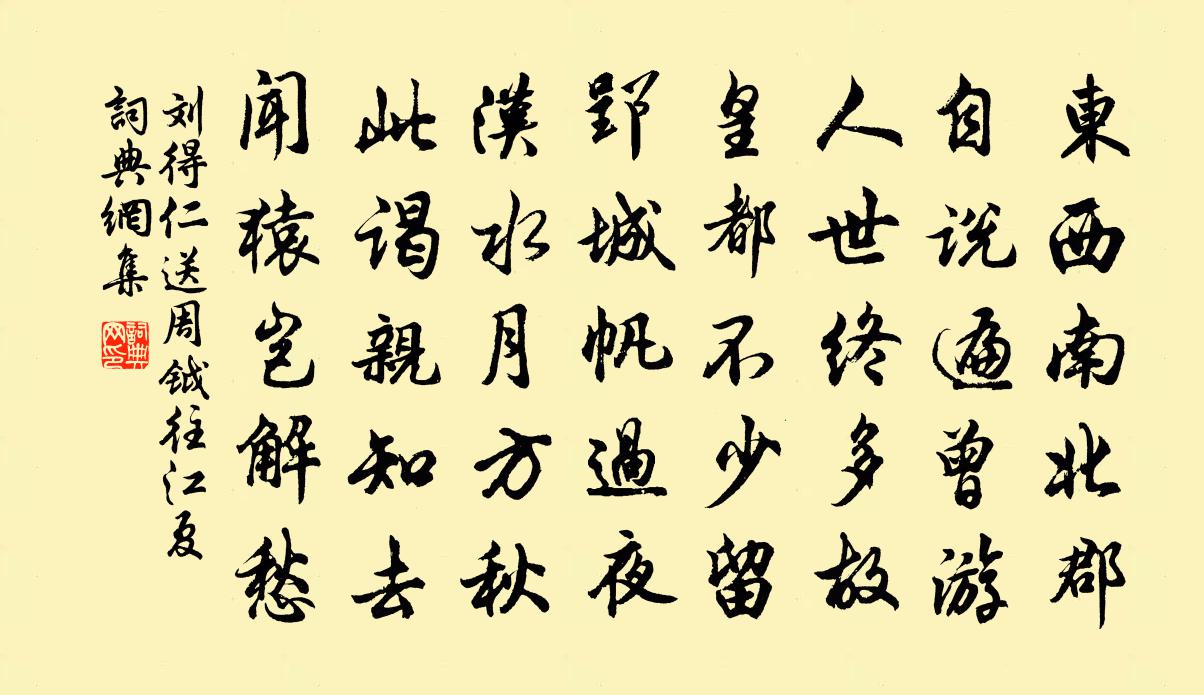 東西南北郡
自说遍曾游
人世终多故
皇都不少留
郢城帆過夜
漢水月方秋
此谒親知去
闻猿岂解愁
刘得仁送周钺往江夏
詞典網集
詞典网印